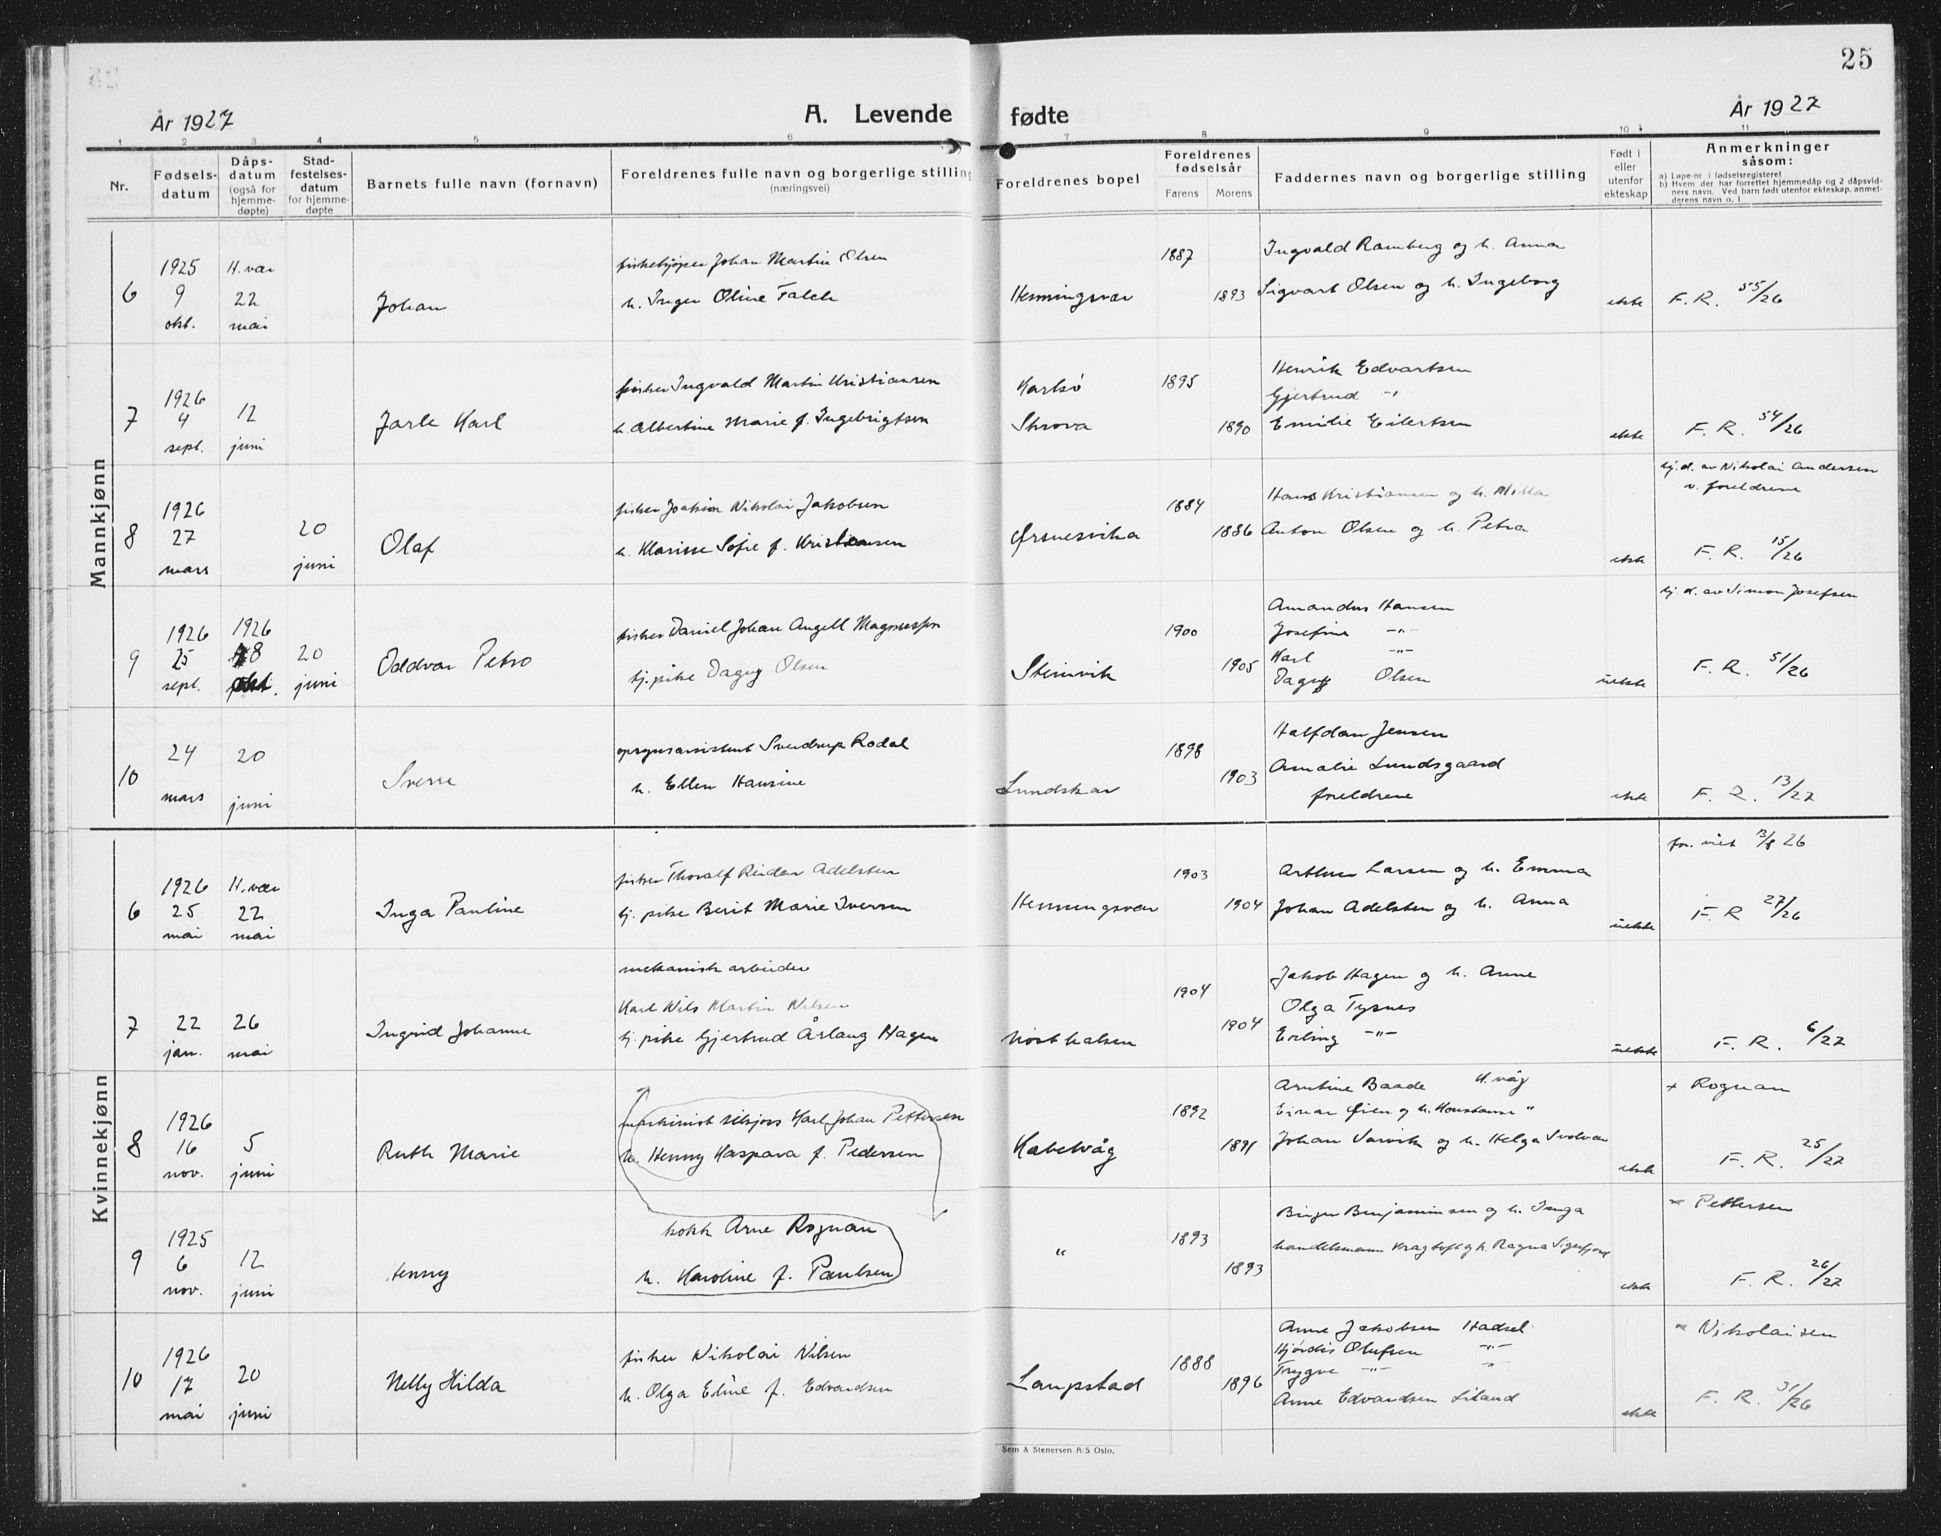 25
År 1927
A. Levende fødte
År 1927
1 2 3 4 5 6 7 8 9 10 11
Nr.
Fødsels-
datum
Dåps-
datum
(også for
hjemme-
døpte)
Stad-
festelses-
datum
for hjemme-
døpte
Barnets fulle navn (fornavn)
Foreldrenes fulle navn og borgerlige stilling
(næringsvei)
Foreldrenes bopel
Foreldrenes
fødselsår
Farens Morens
Faddernes navn og borgerlige stilling
Født i
eller
utenfor
ekteskap
Anmerkninger
såsom:
a) Løpe-nr i fødselsregisteret
b) Hvem der har forrettet hjemmedåp og 2 dåpsvid-
ners navn. Ved barn født utenfor ekteskap, anmel-
derens navn o. l
Mannkjønn
6
1925
9
okt.
H.vær
22
mai
Johan
fiskekjøper Johan Martin Olsen
h. Inger Oline Falch
Henningsvær
1887
1893
Ingvald Ramberg og h. Anna
Sigvart Olsen og h. Ingeborg
ekte
F. R. 55/26
7
1926
4
sept.
12
juni
Jarle Karl
fisker Ingvald Martin Kristiansen
h. Albertine Marie f. Ingebrigtsen
Karlsø
Skrova
1895
1890
Henrik Edvartsen
Gjertrud -"-
Emilie Eilertsen
ekte
F. R. 54/26
8
1926
27
mars
20
juni
Olaf
fisker Joakim Nikolai Jakobsen
h. Klarisse Sofie f. Kristiansen
Ørsnesvika
1884
1886
Hans Kristiansen og h. Milla
Anton Olsen og h. Petra
ekte
hj. d. av Nikolai Andersen
v. foreldrene
F. R. 15/26
9
1926
25
sept.
1926
8
okt.
20
juni
Oddvar Petro
fisker Daniel Johan Angell Magnussen
tj. pike Dagny Olsen
Steinvik
1900
1905
Amandus Hansen
Josefine -"-
Karl -"-
Dagny Olsen
uekte
hj. d. av Simon Josefsen
F. R. 51/26
10
24
mars
20
juni
Sverre
opsynsassistent Sverdrup Rodal
h. Ellen Hansine
Lundskar
1898
1903
Halfdan Jensen
Amalie Lundsgaard
foreldrene
ekte
F. R. 13/27
Kvinnekjønn
6
1926
25
mai
H.vær
22
mai
Inga Pauline
fisker Thoralf Reidar Adelsten
tj. pike Berit Marie Iversen
Henningsvær
1903
1904
Arthur Larsen og h. Emma
Johan Adelsten og h. Anna
uekte
for. viet 13/8 26
F. R 27/26
7
22
jan.
26
mai
Ingrid Johanne
mekanisk arbeider
Karl Nils Martin Nilsen
tj. pike Gjertrud Årlaug Hagen
1904
1904
Jakob Hagen og h. Anne
Olga Tysnes
Erling -"-
uekte
F. R. 6/27
8
1926
16
nov.
5
juni
Ruth Marie
maskinist Karl Johan Pettersen
h. Henny Kaspara f. Pedersen
Kabelvåg
1892
1891
Arntine Baade K.våg
Einar Øien og h. Konstanse "
Johan Varvik og h. Helga Svolvær
ekte
+ Rognan
F. R. 25/27
9
1925
6
nov.
12
juni
Henny
kokk Arne Rognan
h. Karoline f. Paulsen
"
1893
1893
Birger Benjaminsen og h. Inga
handelsmann Kragtoft og h. Ragna Sigerfjord
ekte
Pettersen
F. R. 26/27
10
1926
17
mai
20
juni
Nelly Hilda
fisker Nikolai Nilsen
h. Olga Eline f. Edvardsen
Laupstad
1888
1896
Anne Jakobsen Hadsel
Hjørdis Olufsen -"-
Trygve -"- "
Anne Edvardsen Liland
ekte
Nikolaisen
F. R. 31/26
Sem & Stenersen A/S Oslo.